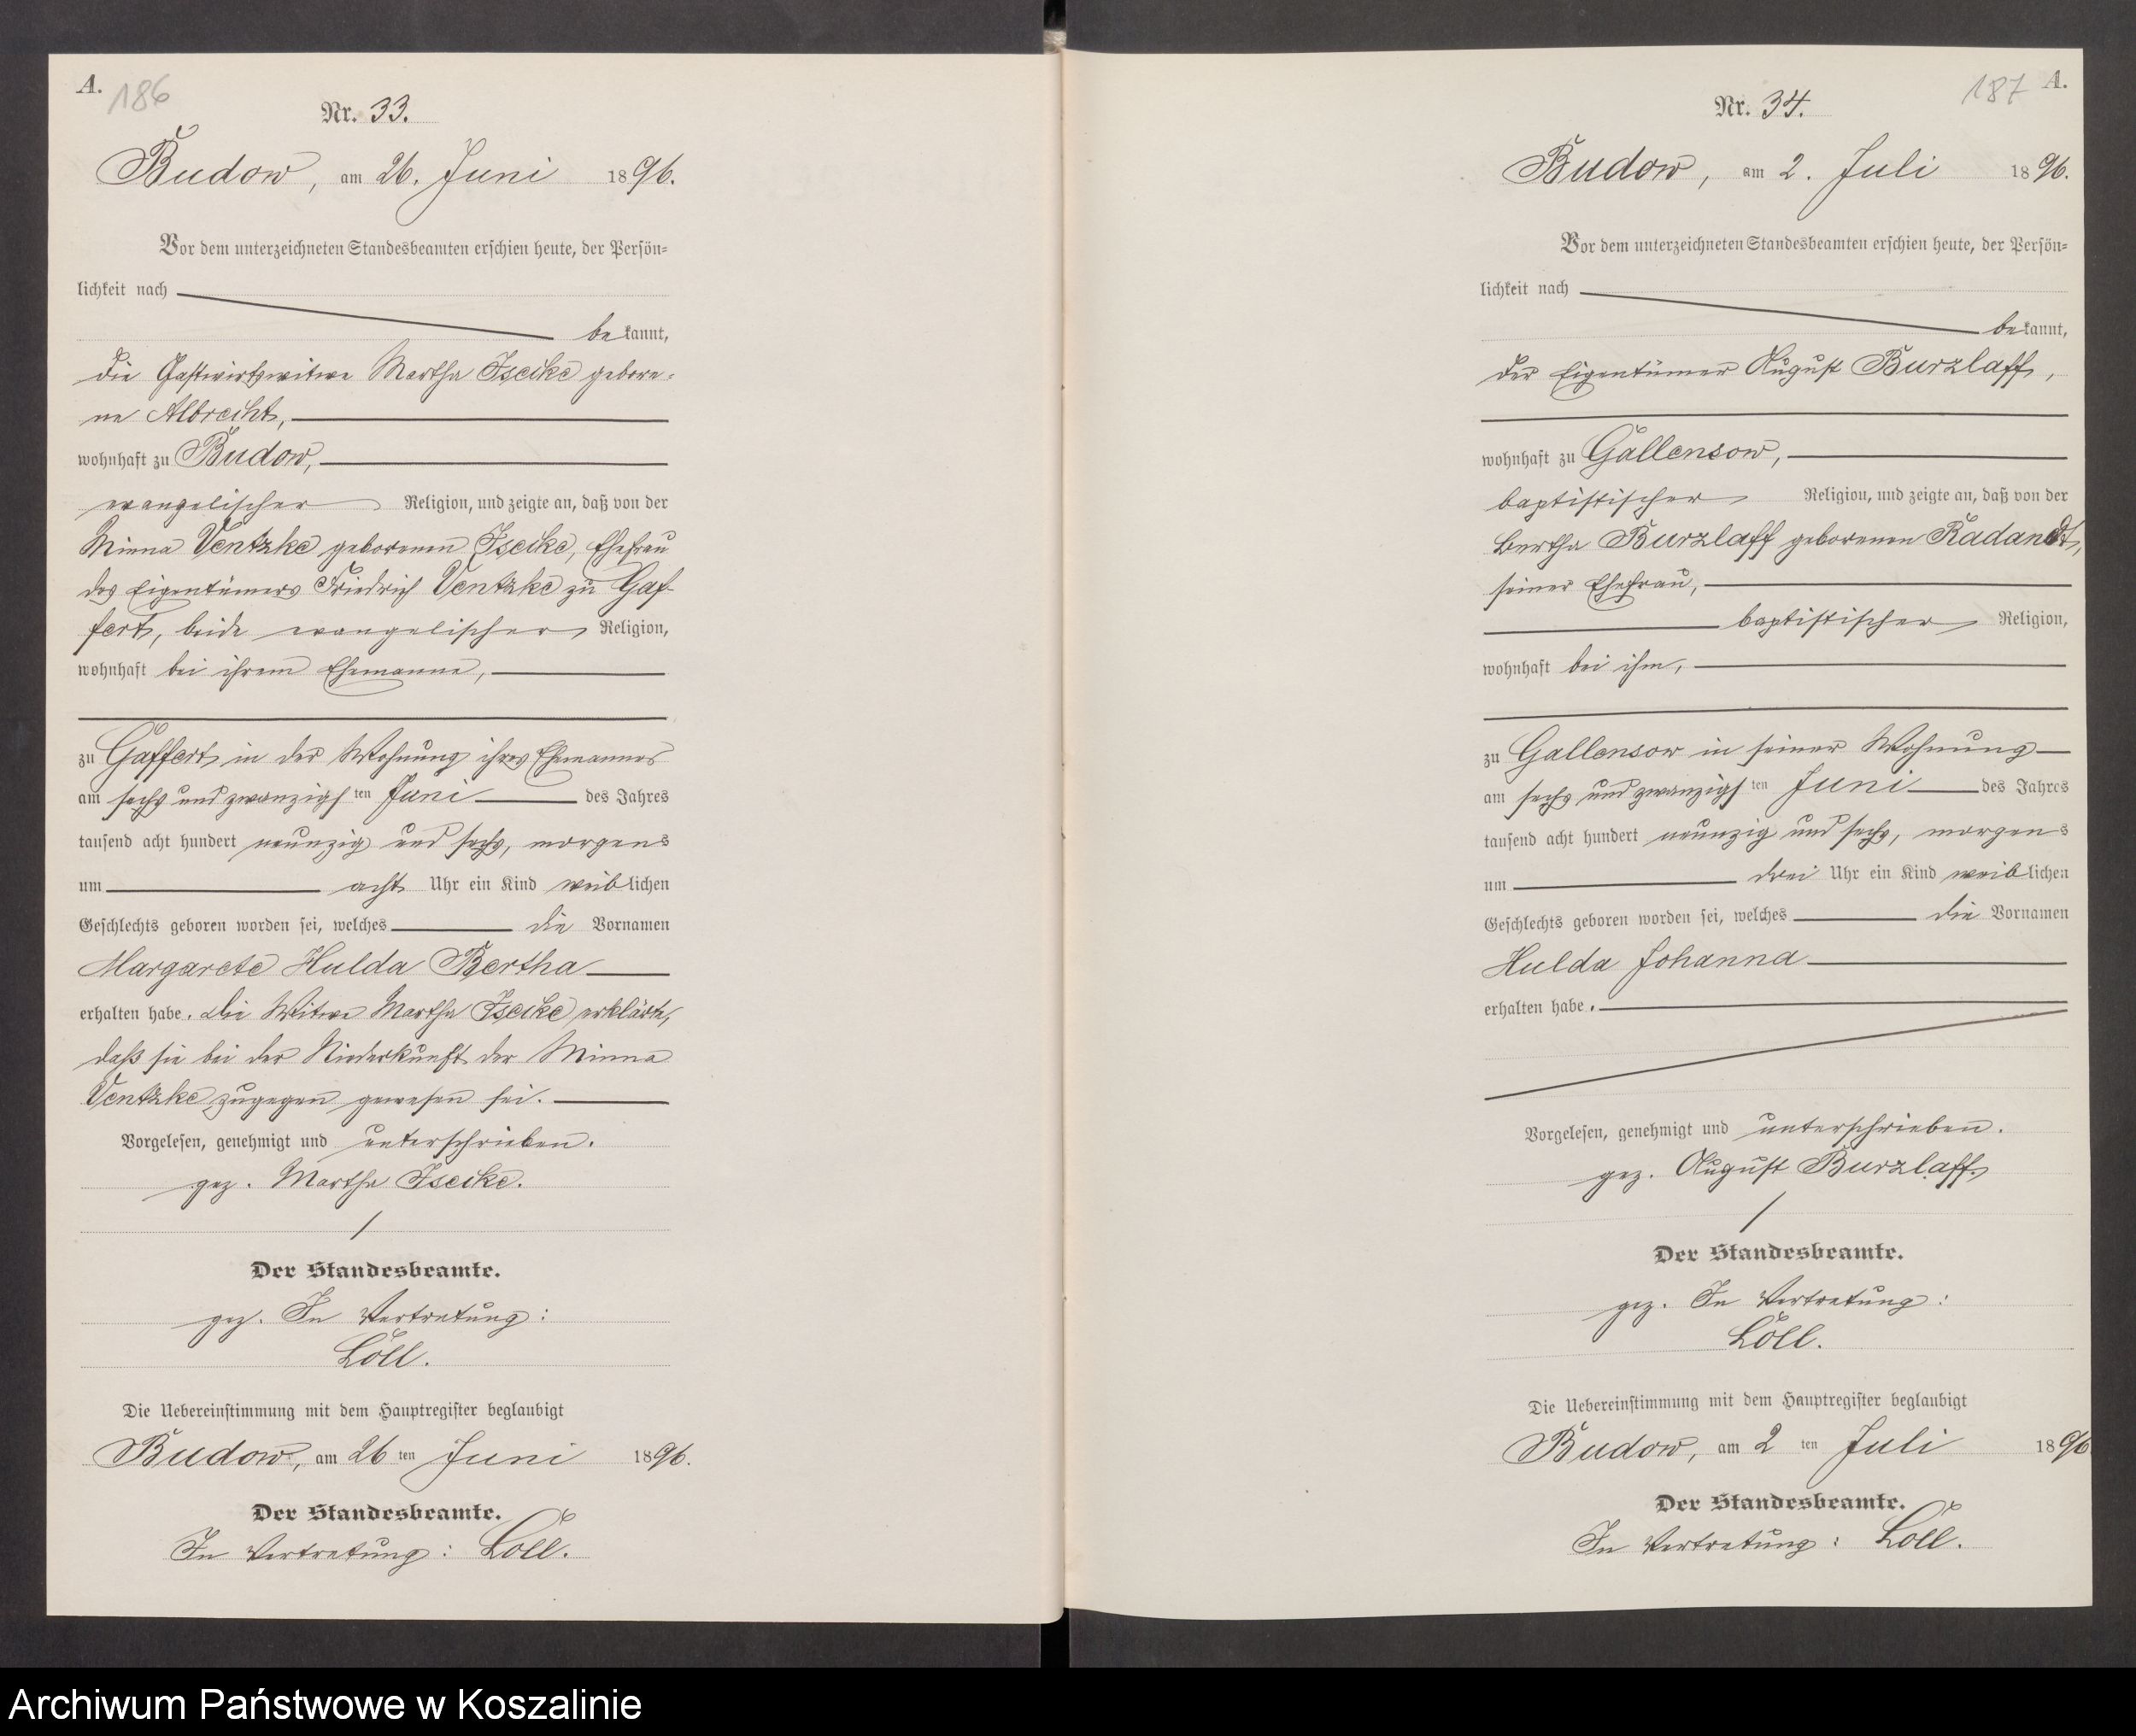 A. 186
Nr. 33.
Budow, am 26. Juni 1896.
Vor dem unterzeichneten Standesbeamten erschien heute, der Persön=
lichkeit nach
bekannt,
die Gastwirtswitwe Martha Iseike gebore=
ne Albrecht,
wohnhaft zu Budow,
evangelischer Religion, und zeigte an, daß von der
Minna Ventzke geborenen Iseike, Ehefrau
des Eigentümers Friedrich Ventzke zu Gaf-
fert, beide evangelischer Religion,
wohnhaft bei ihrem Ehemanne,
zu Gaffert in der Wohnung ihres Ehemannes
am sechs und zwanzigsten Juni des Jahres
tausend acht hundert neunzig und sechs, morgens
um acht Uhr ein Kind weiblichen
Geschlechts geboren worden sei, welches die Vornamen
Margarete Hulda Bertha
erhalten habe. Die Witwe Martha Iseike erklärte,
daß sie bei der Niederkunft der Minna
Ventzke zugegen gewesen sei.
Vorgelesen, genehmigt und unterschrieben.
gez. Martha Iseike.
Der Standesbeamte.
gez. In Vertretung:
Löll.
Die Uebereinstimmung mit dem Hauptregister beglaubigt
Budow, am 26 ten Juni 1896.
Der Standesbeamte.
In Vertretung: Löll.
187 A.
Nr. 34.
Budow, am 2. Juli 1896.
Vor dem unterzeichneten Standesbeamten erschien heute, der Persön=
lichkeit nach
bekannt,
der Eigentümer August Burzlaff,
wohnhaft zu Gallensow,
baptistischer Religion, und zeigte an, daß von der
Bertha Burzlaff geborenen Radandt,
seiner Ehefrau,
baptistischer Religion,
wohnhaft bei ihm,
zu Gallensow in seiner Wohnung
am sechs und zwanzigsten Juni des Jahres
tausend acht hundert neunzig und sechs, morgens
um drei Uhr ein Kind weiblichen
Geschlechts geboren worden sei, welches die Vornamen
Hulda Johanna
erhalten habe.
Vorgelesen, genehmigt und unterschrieben.
gez. August Burzlaff.
Der Standesbeamte.
gez. In Vertretung:
Löll.
Die Uebereinstimmung mit dem Hauptregister beglaubigt
Budow, am 2 ten Juli 1896
Der Standesbeamte.
In Vertretung: Löll.
Archiwum Państwowe w Koszalinie